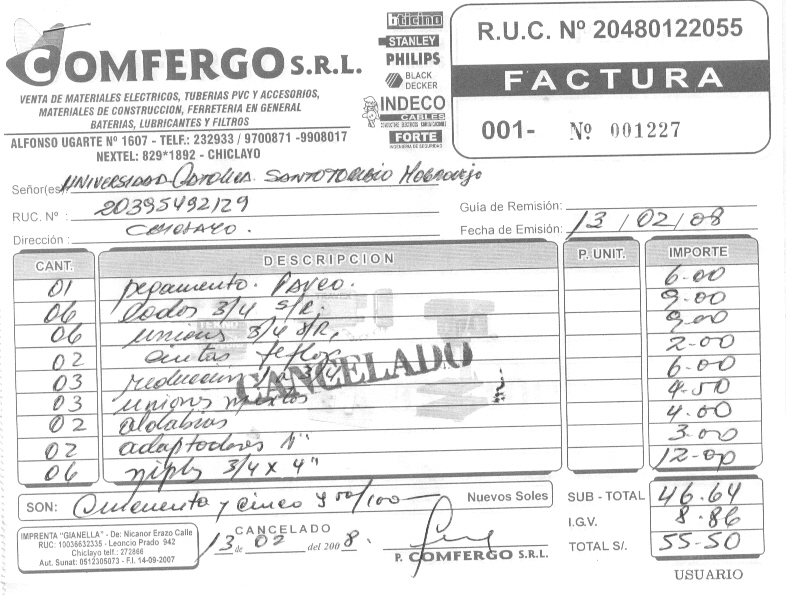 COMFERGO S.R.L.
VENTA DE MATERIALES ELECTRICOS, TUBERIAS PVC Y ACCESORIOS,
MATERIALES DE CONSTRUCCION, FERRETERIA EN GENERAL
BATERIAS, LUBRICANTES Y FILTROS
ALFONSO UGARTE Nº 1607 - TELF.: 232933 / 9700871 -9908017
NEXTEL: 829*1892 - CHICLAYO
bticino
STANLEY
PHILIPS
BLACK DECKER
INDECO
CABLES
FORTE
R.U.C. Nº 20480122055
FACTURA
001- Nº 001227
Señor(es) UNIVERSIDAD Catolica Santo Toribio Mogrovejo
RUC. Nº : 20395492129
Dirección : Chiclayo.
Guía de Remisión:
Fecha de Emisión: 13/02/08
CANT. DESCRIPCION P. UNIT. IMPORTE
01 pegamento. Pavco. 6-00
06 codos 3/4 S/R, 9-00
06 uniones 3/4 S/R, 9-00
02 cintas teflon 2-00
03 reduccion 1 a 3/4 6-00
03 uniones mixtos 4-50
02 aldabas 4.00
02 adaptadores 1" 3-00
06 niples 3/4 x 4" 12-00
CANCELADO
SON: Cincuenta y cinco y 50/100 Nuevos Soles
SUB - TOTAL 46.64
I.G.V. 8-86
TOTAL S/. 55-50
IMPRENTA "GIANELLA" - De: Nicanor Erazo Calle
RUC: 10036632335 - Leoncio Prado 942
Chiclayo telf.: 272866
Aut. Sunat: 0512305073 - F.I. 14-09-2007
CANCELADO
13 de 02 del 2008.
P. COMFERGO S.R.L.
USUARIO